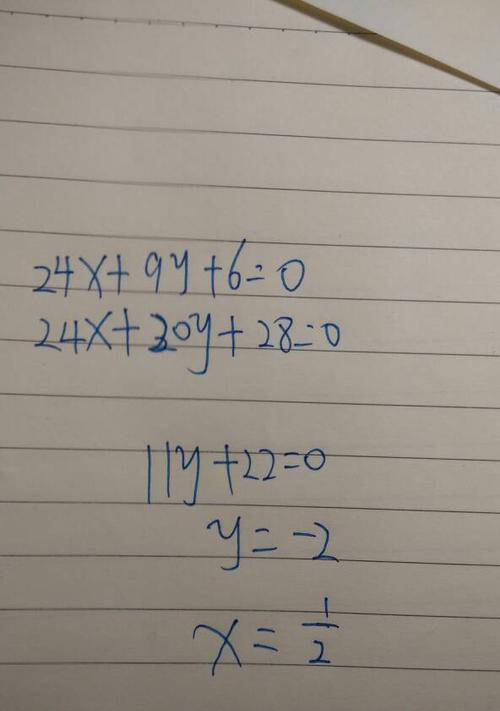 24x+9y+6=0
24x+20y+28=0
11y+22=0
y=-2
x=1/2